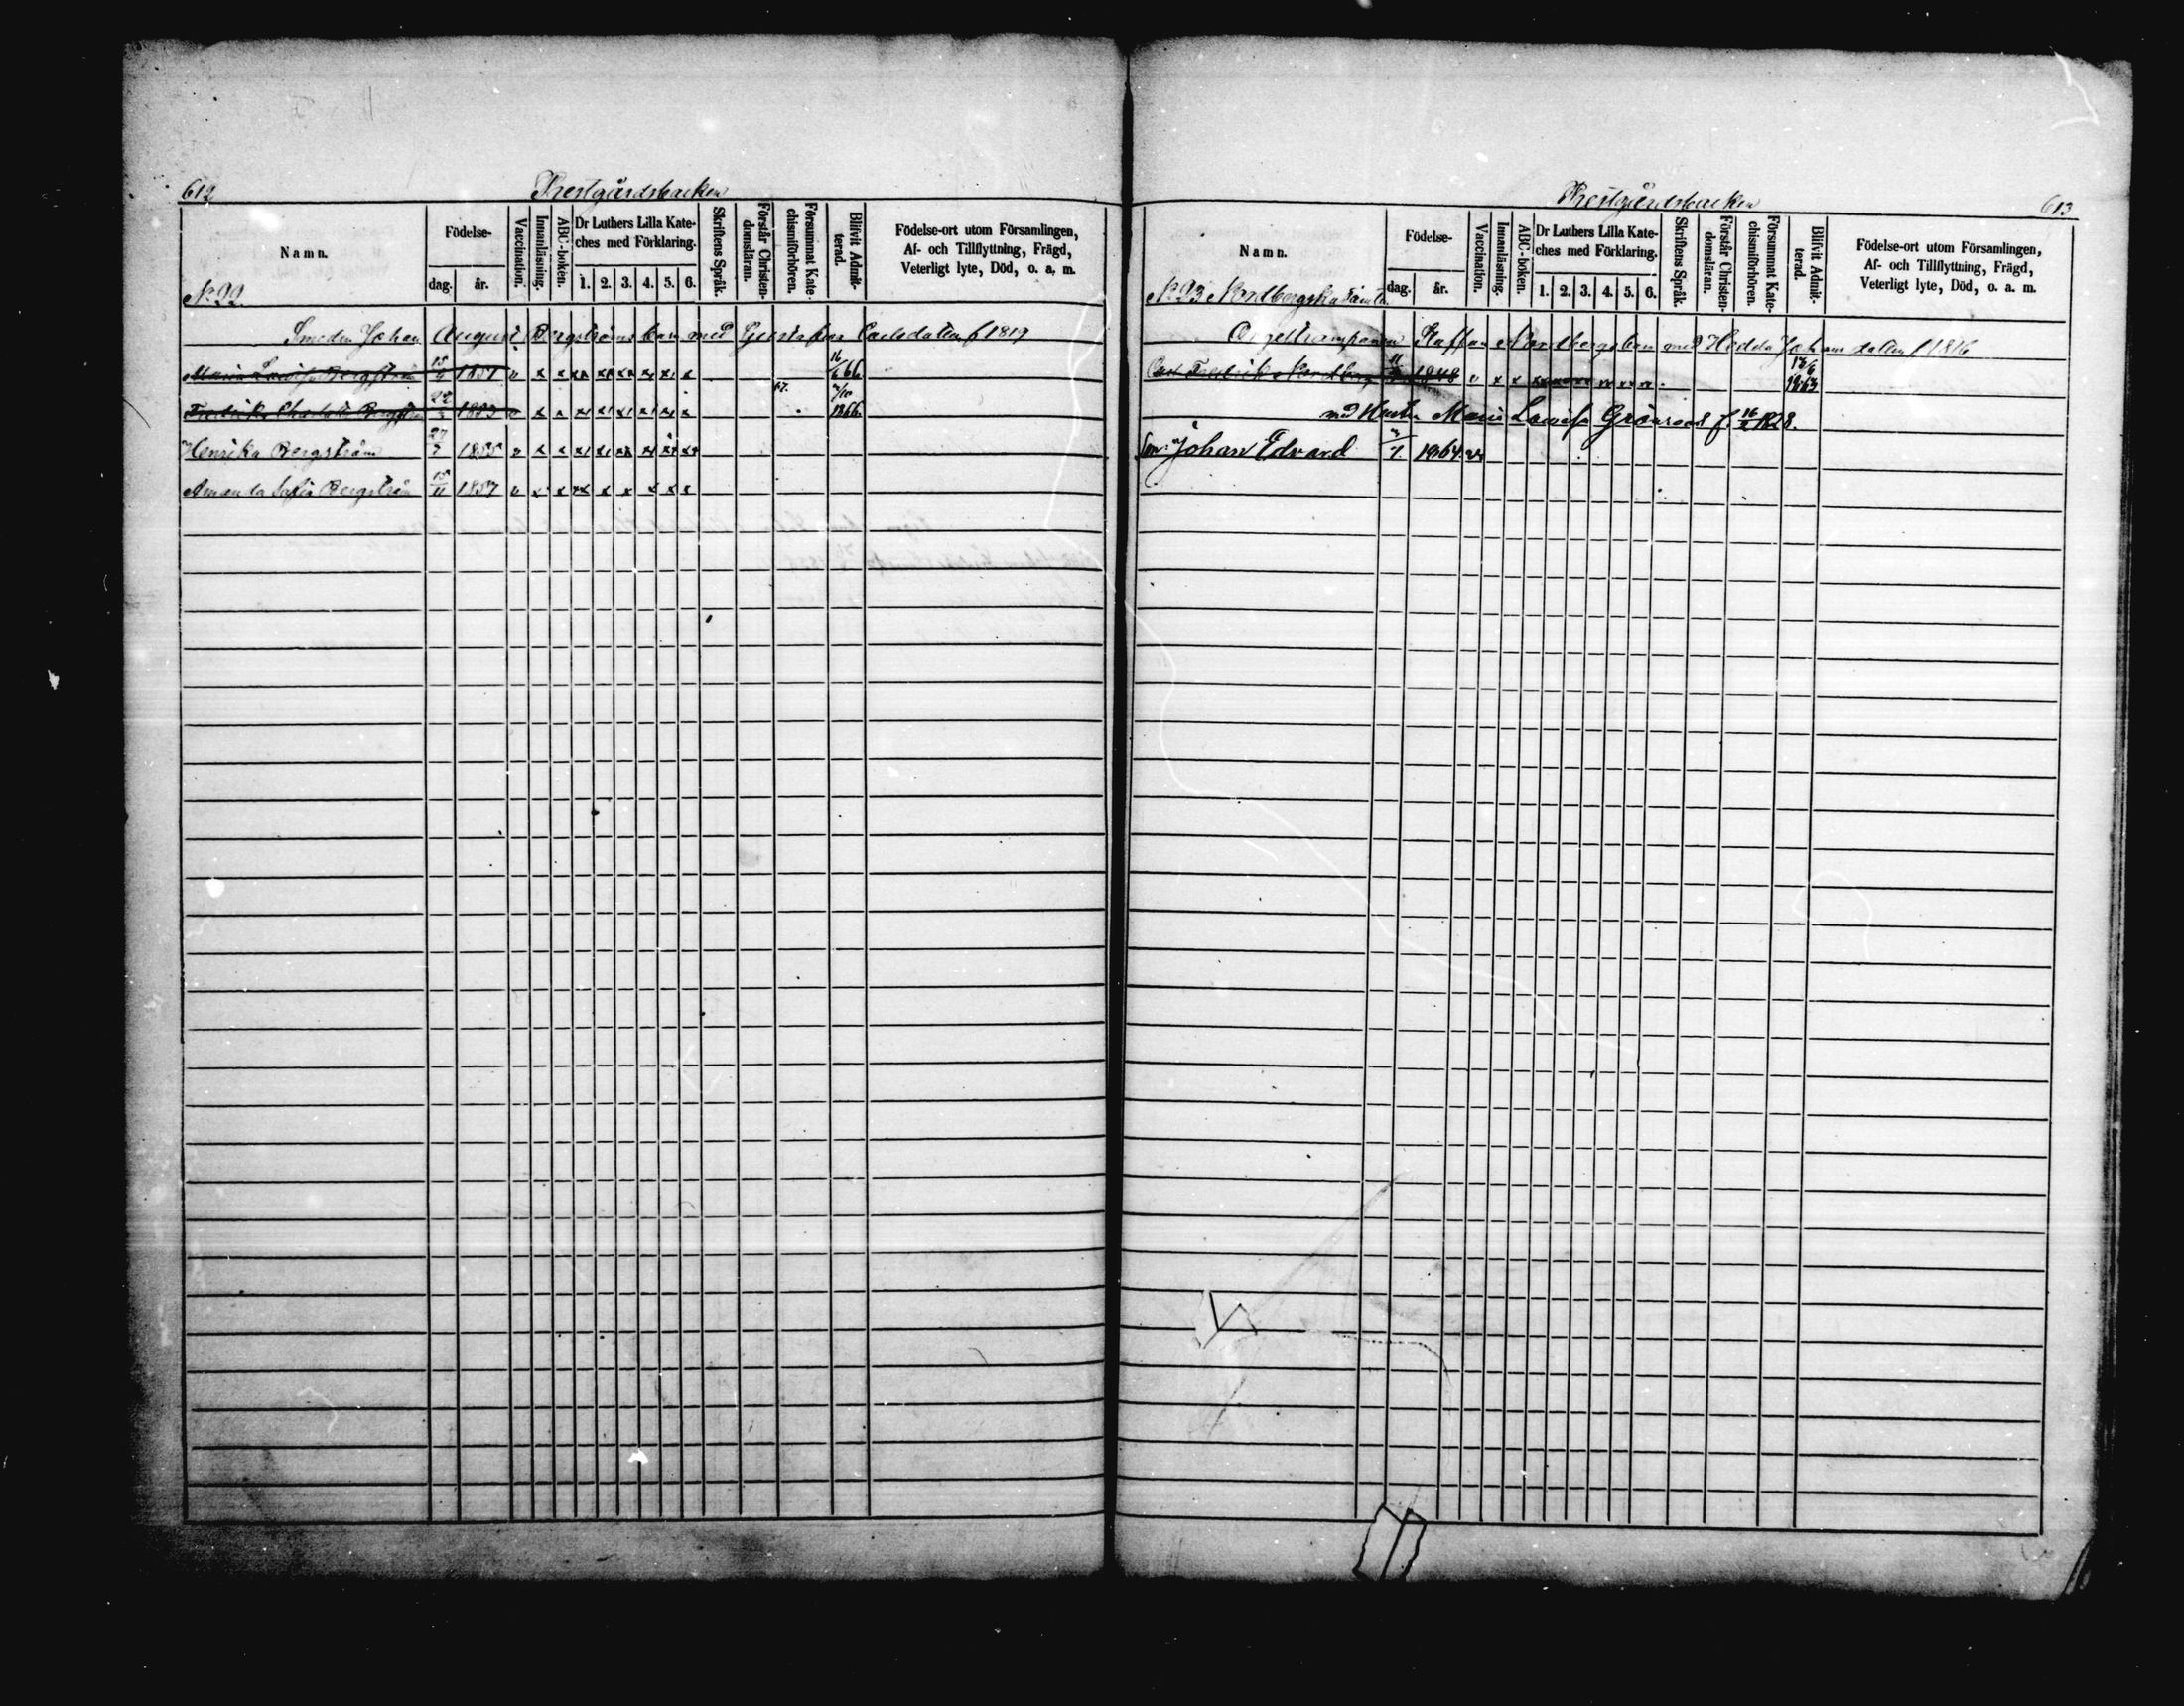 612 Prestgårdsbacken
Namn.
Födelse-
dag. år.
Vaccination.
Innanläsning.
ABC-boken.
Dr Luthers Lilla Kate-
ches med Förklaring.
1. 2. 3. 4. 5. 6.
Skriftens Språk.
Förstår Christen-
domsläran.
Försummat Kate-
chismiförhören.
Blifvit Admit-
terad.
Födelse-ort utom Församlingen,
Af- och Tillflyttning, Frägd,
Veterligt lyte, Död, o. a. m.
N:o 22.
Smeden Johan August Bergströms barn med Gustafva Carlsdotter f 1819
Maria Lovisa Bergström 15/4 1851 v x x x x x x x x 16/6 66
Fredrika Charlotta Bergström 22/3 1853 v x x x x x x x x 67. 1866
Henrika Bergström 27/7 1855 v x x x x x x x x
Amanda Sofia Bergström 15/11 1857 v x x x x x x x x
Prestgårdsbacken 613
Namn.
Födelse-
dag. år.
Vaccination.
Innanläsning.
ABC-boken.
Dr Luthers Lilla Kate-
ches med Förklaring.
1. 2. 3. 4. 5. 6.
Skriftens Språk.
Förstår Christen-
domsläran.
Försummat Kate-
chismiförhören.
Blifvit Admit-
terad.
Födelse-ort utom Församlingen,
Af- och Tillflyttning, Frägd,
Veterligt lyte, Död, o. a. m.
N:o 23 Nordbergska
Orgeltramparen Staffan Nordbergs barn med Hedda Johansdotter f 1816
Carl Fredrik Nordberg 1848 v x x x x x x x x 1863
med Hustru Maria Lovisa Grönroos f. 16/2 1828.
Son: Johan Edvard 1864